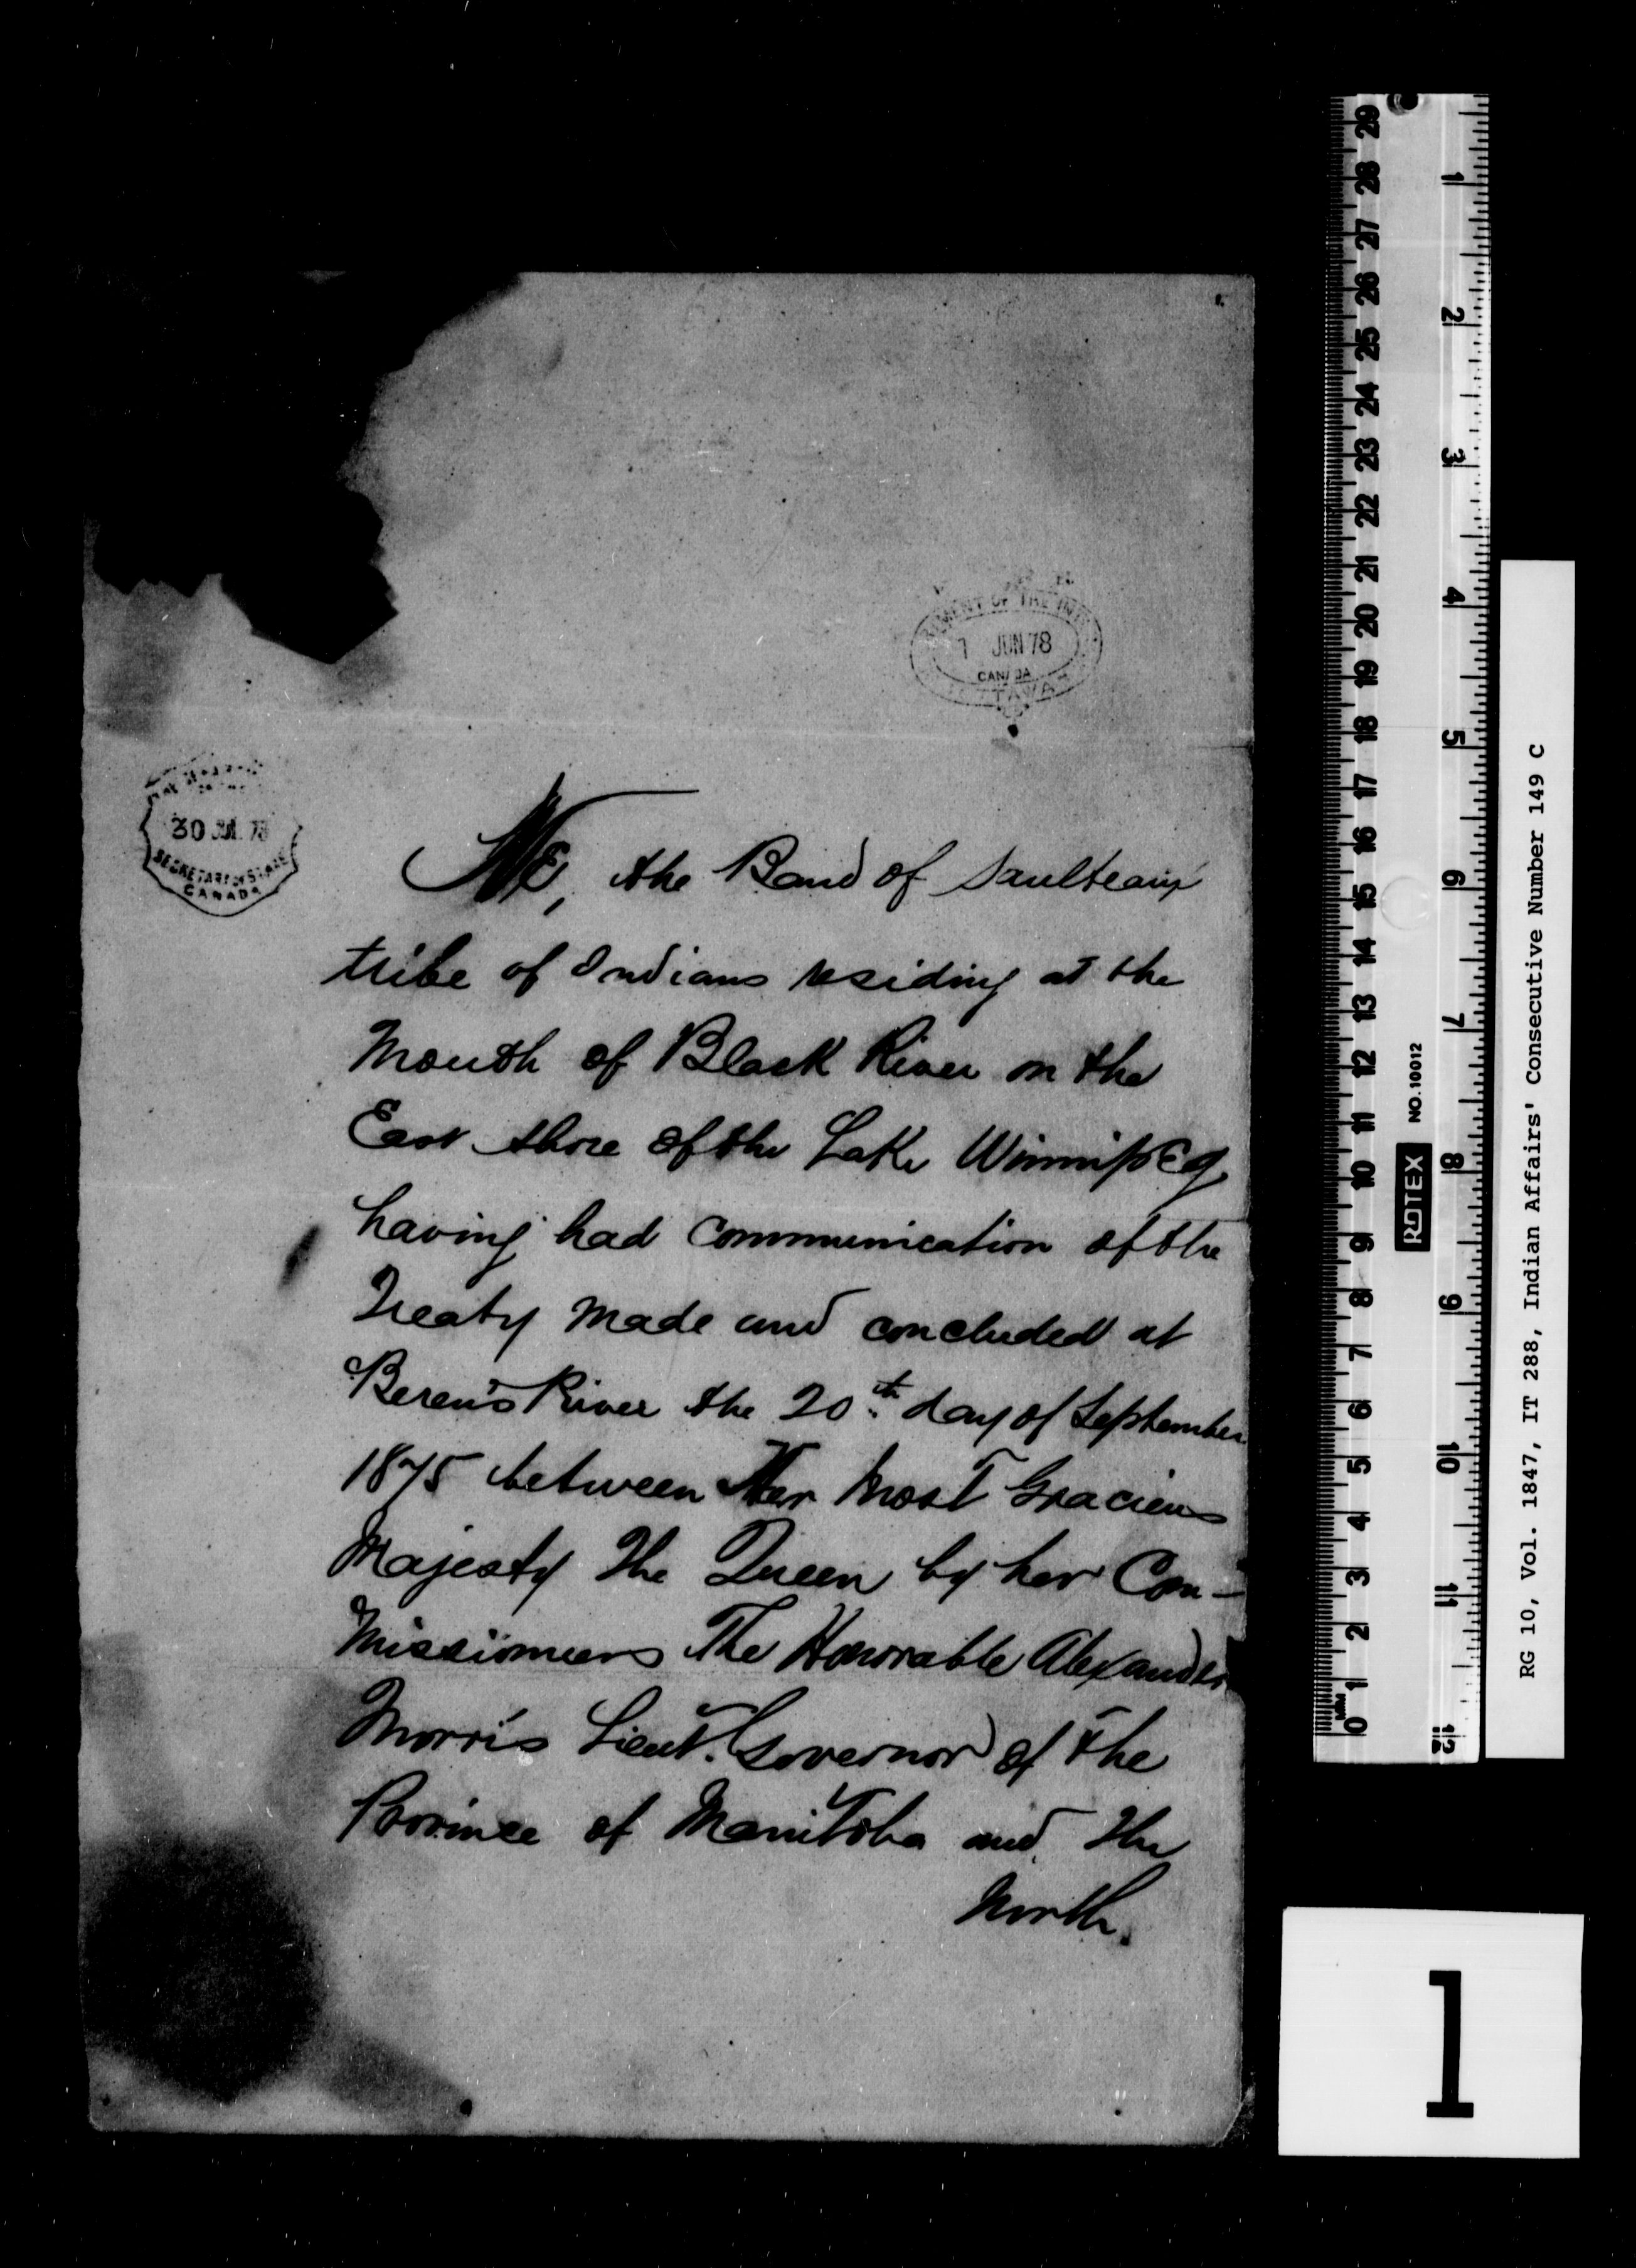 MENT OF THE INT
7 JUN 78
CANADA
OTTAWA
30 JUL 78
SECRETARY OF STATE
CANADA
WE, the Band of Saulteaux
tribe of Indians residing at the
Mouth of Black River on the
East shore of the Lake Winnipeg
having had communication of the
Treaty made and concluded at
Beren's River the 20th day of September
1875 between Her Most Gracious
Majesty The Queen by her Com-
missioners The Honorable Alexander
Morris Lieut. Governor of the
Province of Manitoba and the
North.
RG 10, Vol. 1847, IT 288, Indian Affairs' Consecutive Number 149 C
ROTEX NO. 10012
29 28 27 26 25 24 23 22 21 20 19 18 17 16 15 14 13 12 11 10 9 8 7 6 5 4 3 2 1 0
1 2 3 4 5 6 7 8 9 10 11 12
1